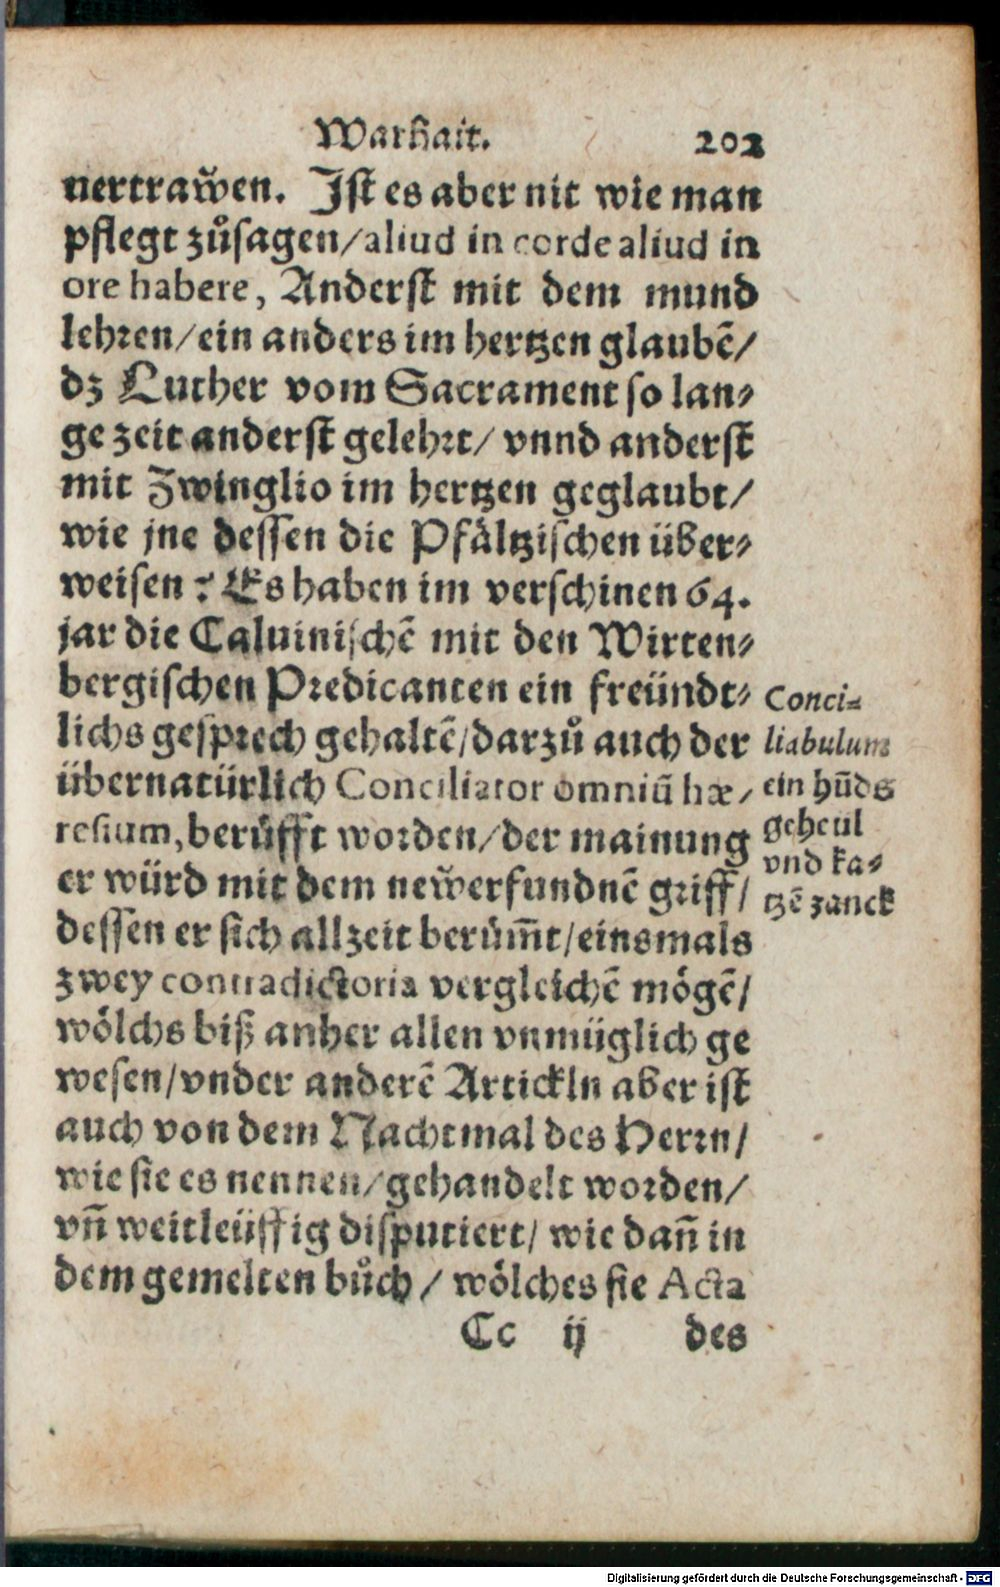 Warhait. 202
uertraw̌en. Jst es aber nit wie man
pflegt zůsagen/aliud in corde aliud in
ore habere, Anderst mit dem mund
lehren/ein anders im hertzen glaubẽ/
dz Luther vom Sacrament so lan⸗
ge zeit anderst gelehrt/ vnnd anderst
mit Zwinglio im hertzen geglaubt/
wie jne dessen die Pfältzischen über⸗
weisen? Es haben im verschinen 64.
jar die Caluinischẽ mit den Wirten⸗
bergischen Predicanten ein freündt⸗
lichs gesprech gehaltẽ/darzů auch der
übernatürlich Conciliator omniũ hæ/
resium, berüfft worden/der mainung
er würd mit dem new̌erfundnẽ griff/
dessen er sich allzeit berüm̃t/einsmals
zwey contradictoria vergleichẽ mögẽ/
wölchs biß anher allen vnmüglich ge
wesen/vnder anderẽ Artickln aber ist
auch von dem Nachtmal des Herrn/
wie sie es nennen/gehandelt worden/
vñ weitleüffig disputiert/ wie dañ in
dem gemelten bůch/ wölches sie Acta
Cc ij des
Conci⸗
liabulum
ein hũds
geheul
vnd ka⸗
tzẽ zanck
Digitalisierung gefördert durch die Deutsche Forschungsgemeinschaft - DFG